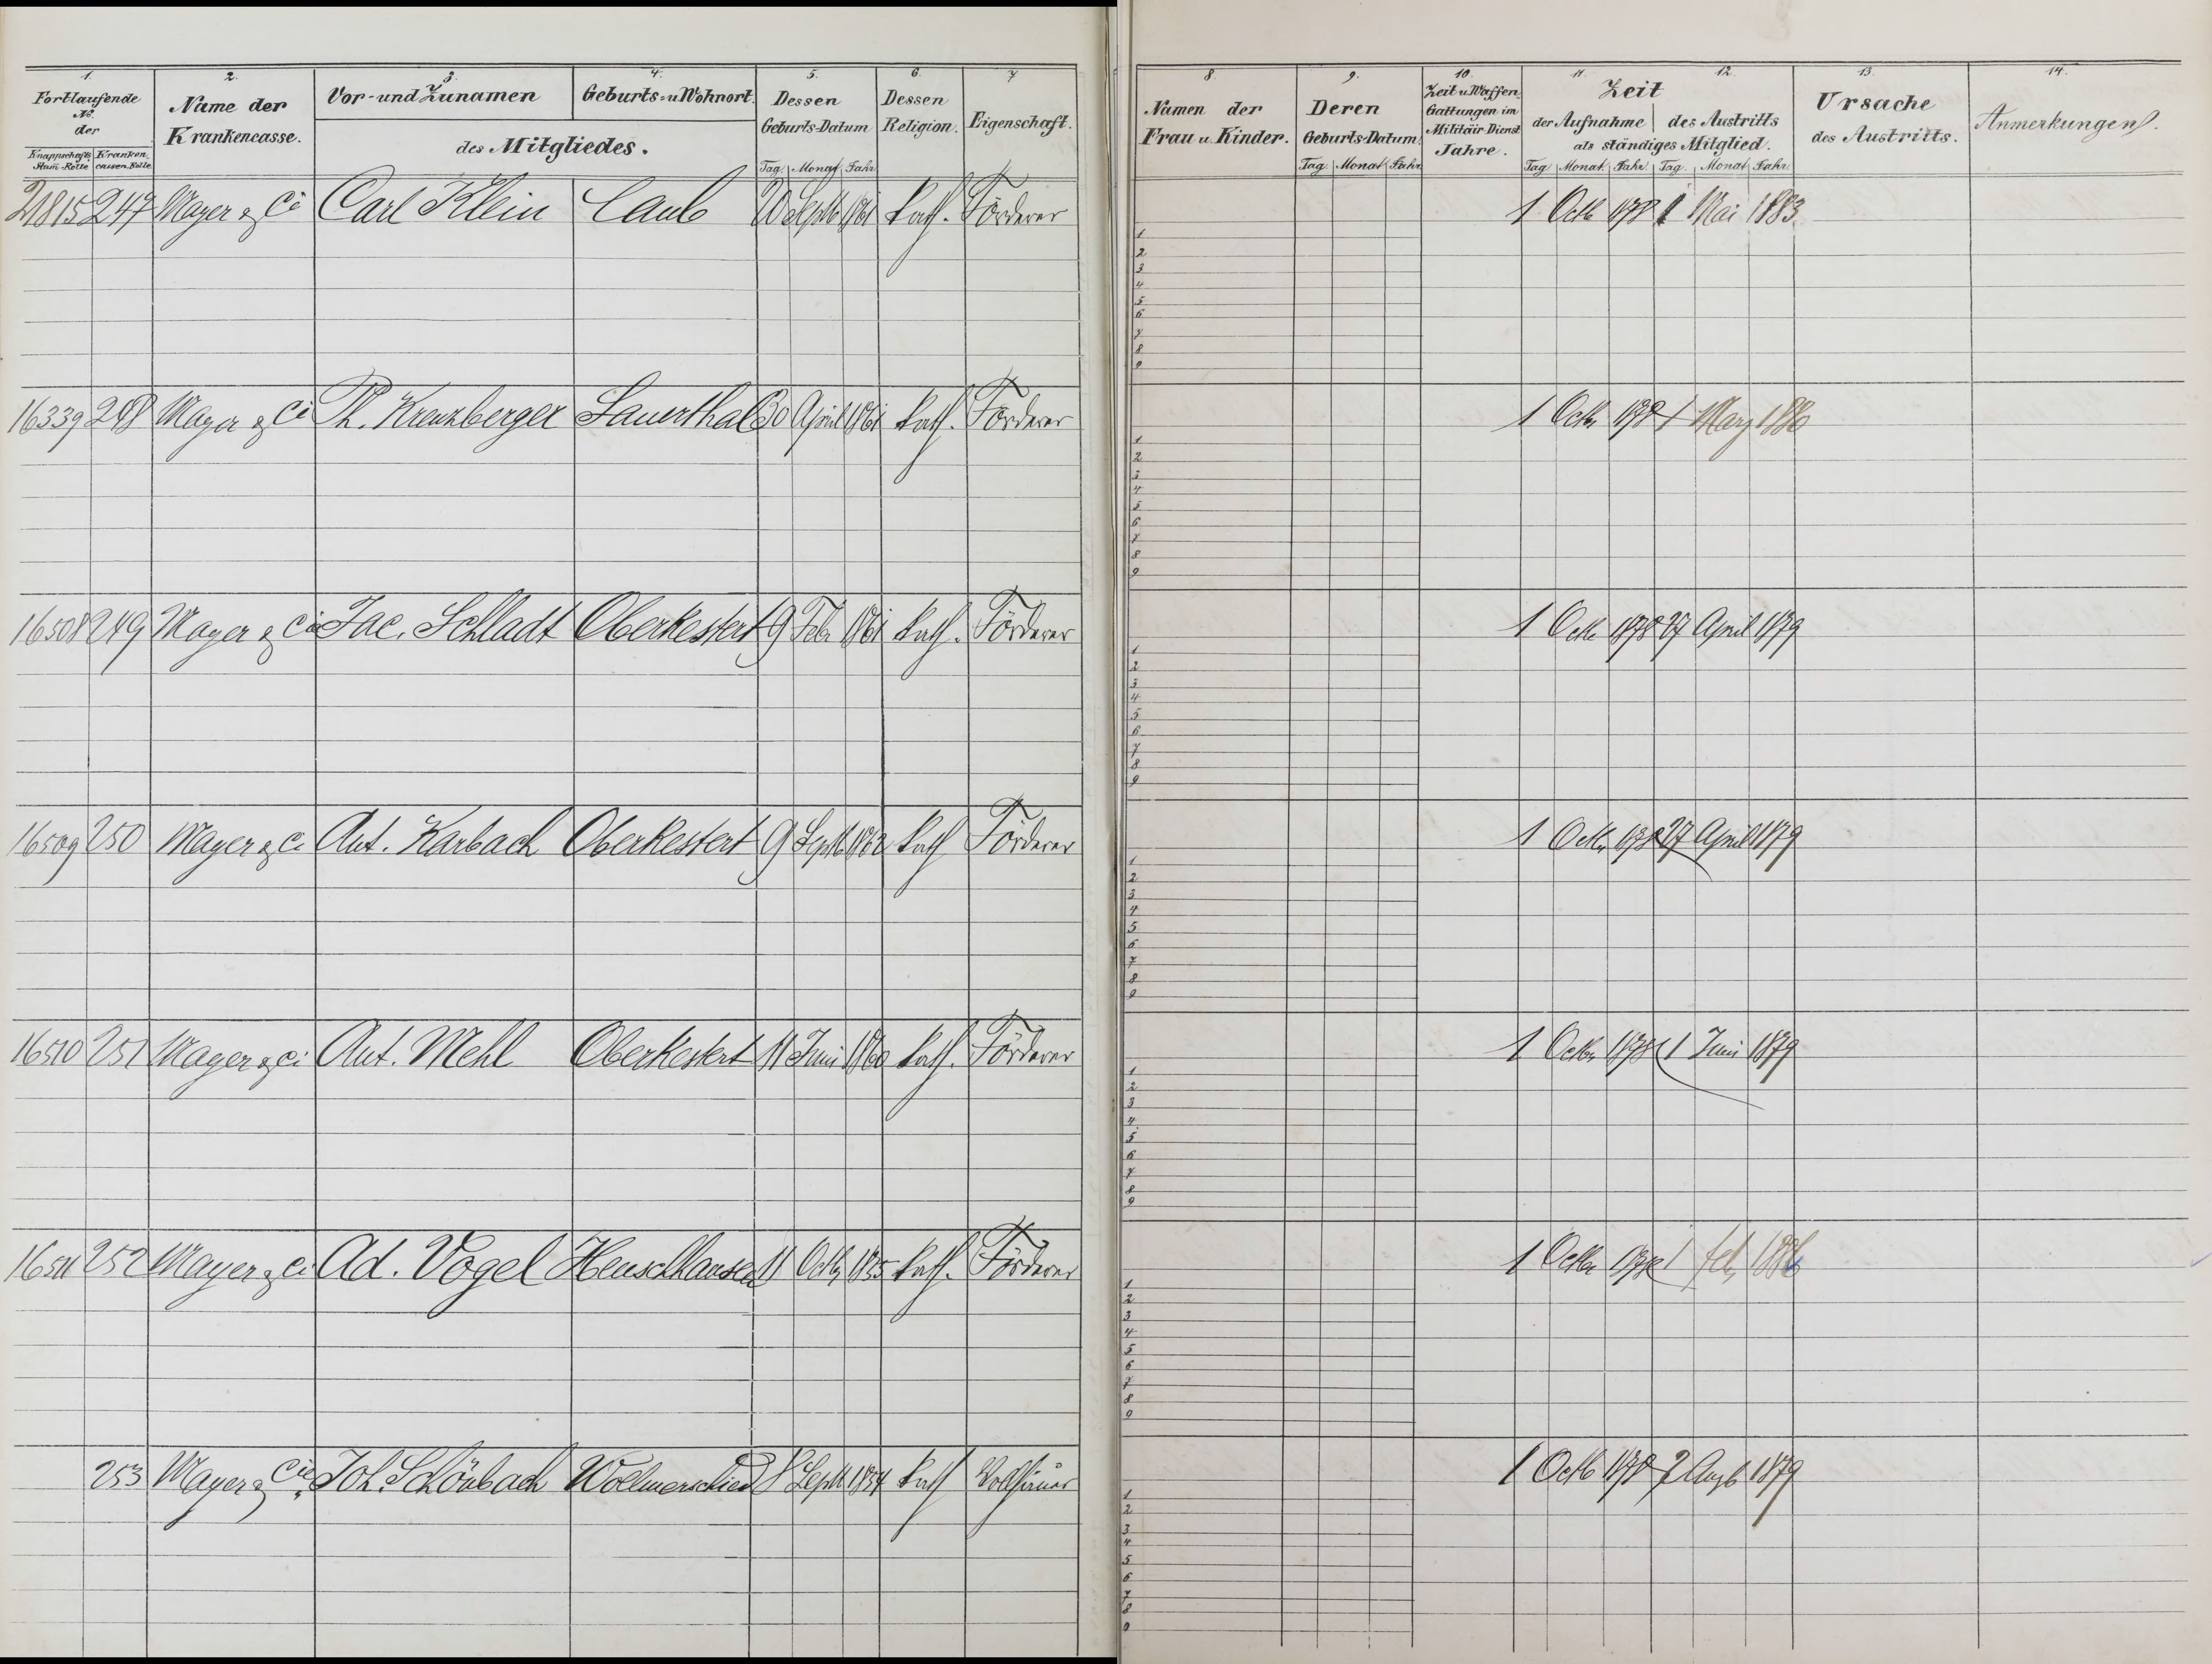 1. 2. 3. 4. 5. 6. 7.
Fortlaufende No. der Name der Krankencasse. Vor- und Zunamen Geburts- u. Wohnort. Dessen Geburts-Datum Dessen Religion. Eigenschaft.
des Mitgliedes.
Knappschafts Stam-Rolle Kranken cassen-Rolle Tag. Monat Jahr.
21815 247 Mayer & Ci Carl Klein Caub 20 Septb 1861 kath. Förderer
16339 248 Mayer & Ci Ph. Kreuzberger Sauerthal 30 April 1861 kath. Förderer
16508 249 Mayer & Cie Jac. Schladt Oberkestert 9 Febr 1861 kath. Förderer
16509 250 Mayer & Ci Ant. Karbach Oberkestert 9 Septb 1862 kath Förderer
16510 251 Mayer & Ci Ant. Mehl Oberkestert 11 Juni 1860 kath. Förderer
16511 252 Mayer & Ci Ad. Vogel Henschhausen 11 Octb 1835 kath. Förderer
253 Mayer & Cie. Joh. Schönbach Wollmerschied 8 Septb 1854 kath Vollhäuer
8. 9. 10. 11. 12. 13. 14.
Namen der Frau u. Kinder. Deren Geburts-Datum. Zeit u. Waffen Gattungen im Militäir-Dienst Jahre. Zeit der Aufnahme des Austritts als ständiges Mitglied. Ursache des Austritts. Anmerkungen.
Tag. Monat Jahr. Tag. Monat. Jahr. Tag. Monat Jahr.
1 Octb 1878 1 Mai 1883
1
2
3
4
5
6
7
8
9
1 Octbr 1878 1 Marz 1880
1
2
3
4
5
6
7
8
9
1 Octb 1878 27 April 1879
1
2
3
4
5
6
7
8
9
1 Octbr 1878 27 April 1879
1
2
3
4
5
6
7
8
9
1 Octbr 1878 1 Juni 1879
1
2
3
4
5
6
7
8
9
1 Octbr 1878 1 feb. 1886
1
2
3
4
5
6
7
8
9
1 Octb 1878 2 Augb 1879
1
2
3
4
5
6
7
8
9